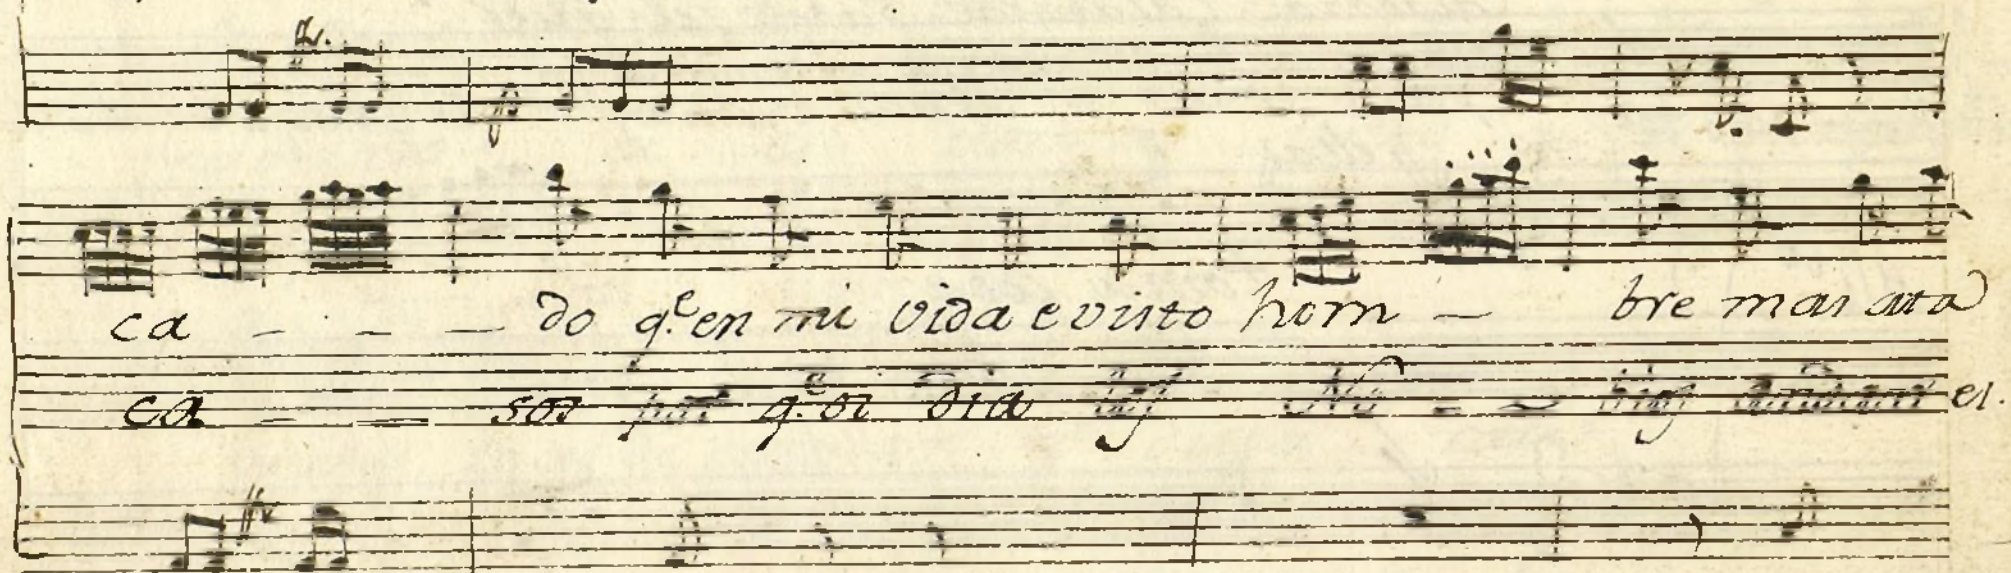 ca - - - do q.e en mi vida e visto hom - bre mas ata
ca - - sos por q.e oi dia las No - - bias es.